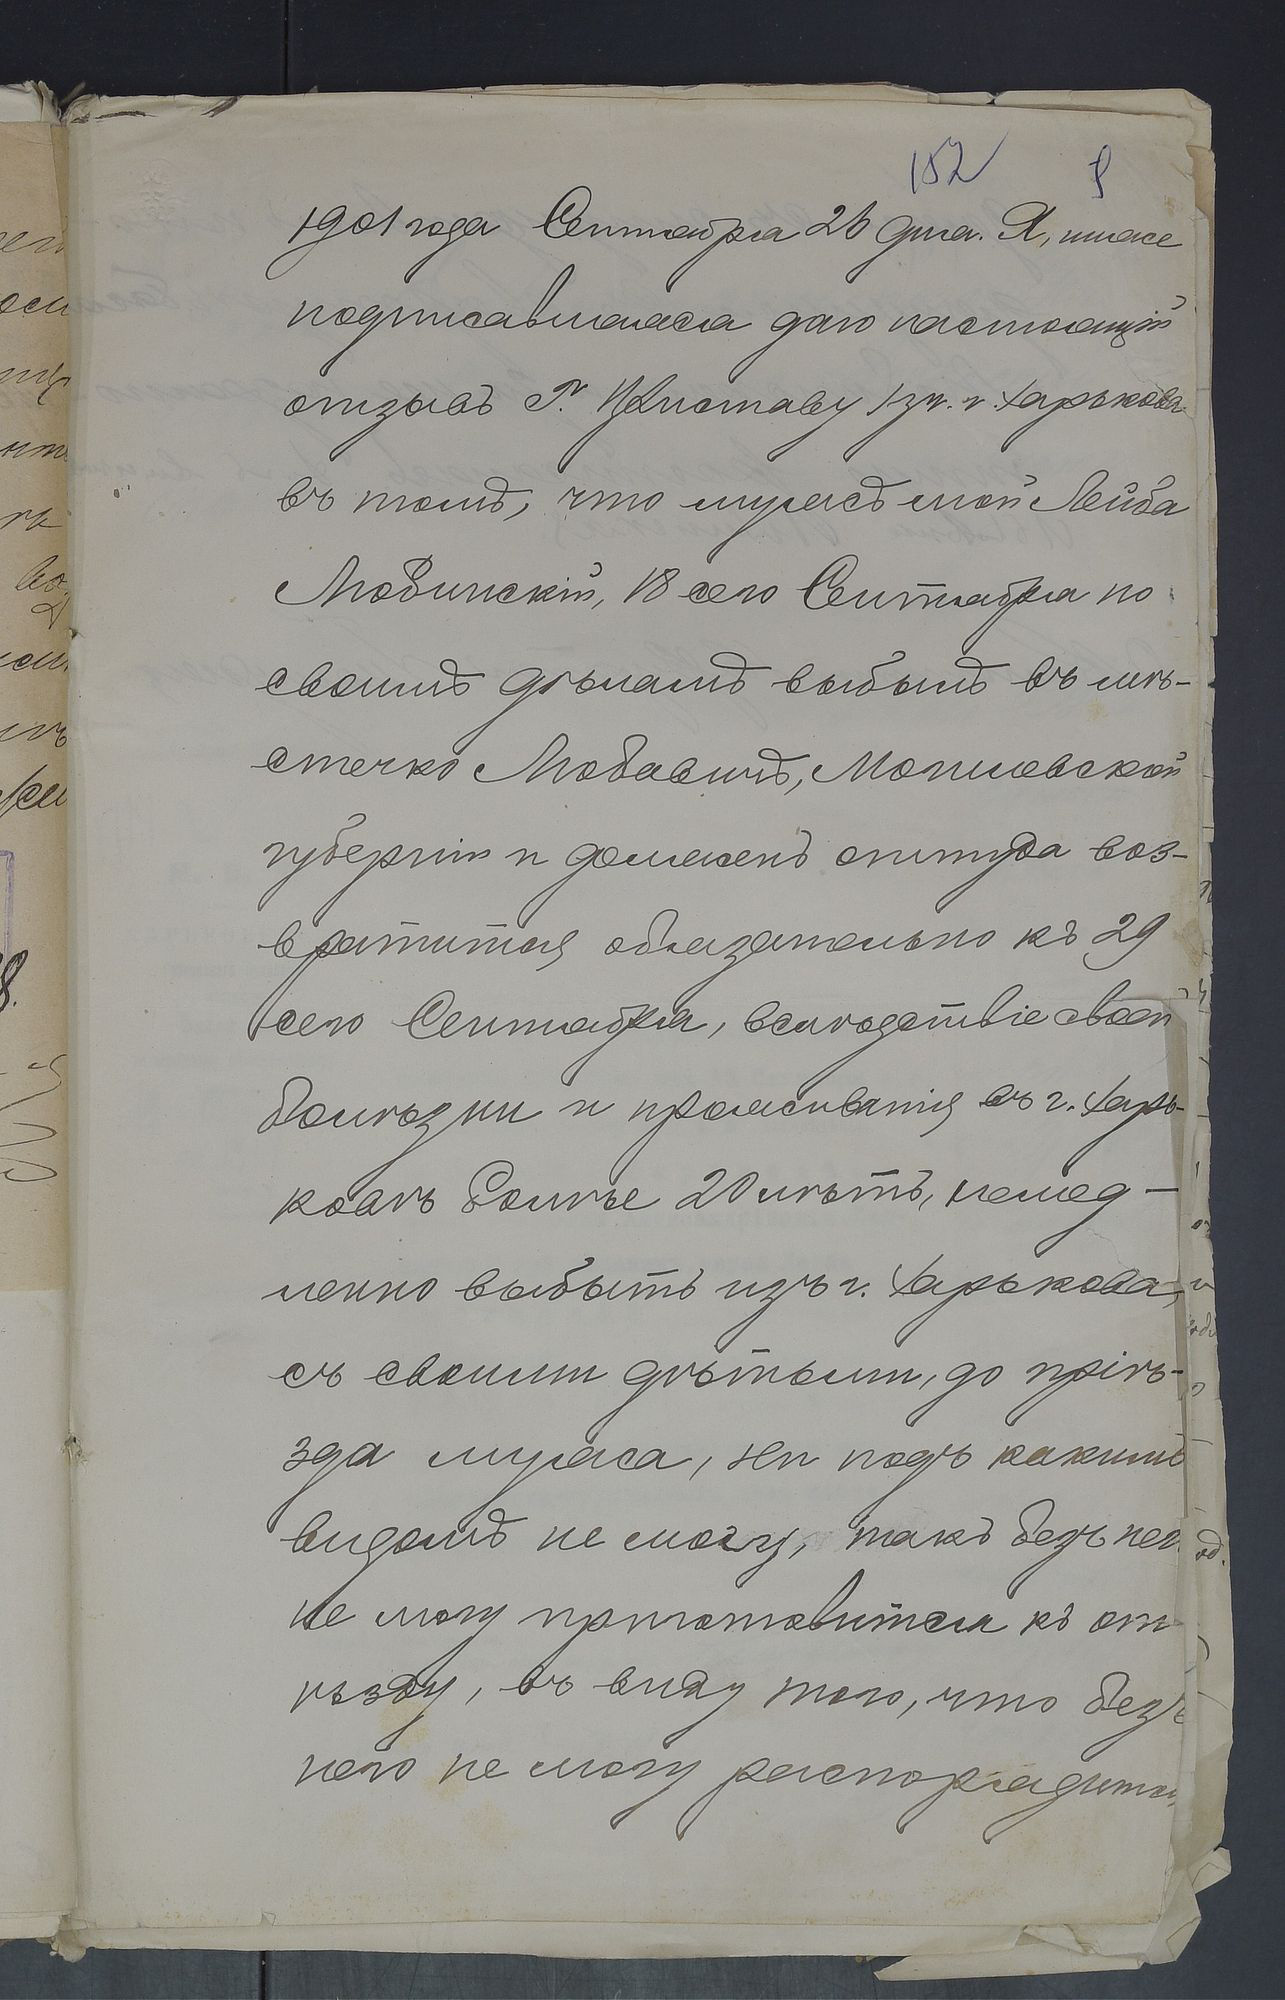 152
1901 года Сентября 26 дня. Я, ниже
подписавшаяся даю настоящій
отзывъ Г. Приставу 1 уч. г. Харькова
въ томъ, что мужъ мой Лейба
Любинскій, 18 сего Сентября по
своимъ дѣламъ выбылъ въ мѣ-
стечко Любавичъ, Могилевской
губерніи и долженъ оттуда воз-
вратится обязательно къ 29
сего Сентября, вслѣдствіе своей
болѣзни и проживанія въ г. Харь-
ковѣ болѣе 20 лѣтъ, немед-
ленно выбыть изъ г. Харькова,
съ своими дѣтьми, до пріѣ-
зда мужа, ни подъ какимъ
видомъ не могу, такъ безъ него
не могу приготовится къ отъ
ѣзду, въ виду того, что безъ
него не могу распорядится